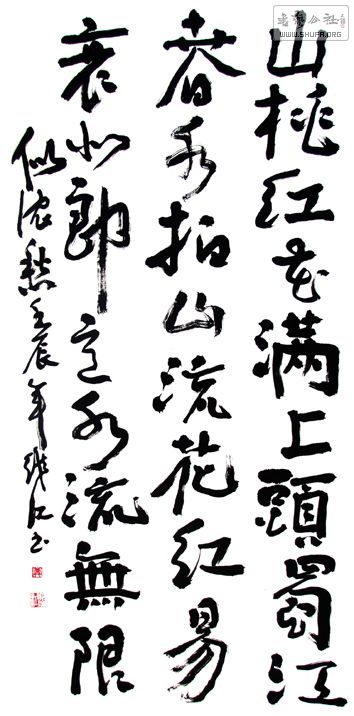 山桃紅花滿上頭蜀江
春水拍山流花紅易
衰似郎意水流無限
似濃愁壬辰年江书
書法公社
WWW.SHUFA.ORG